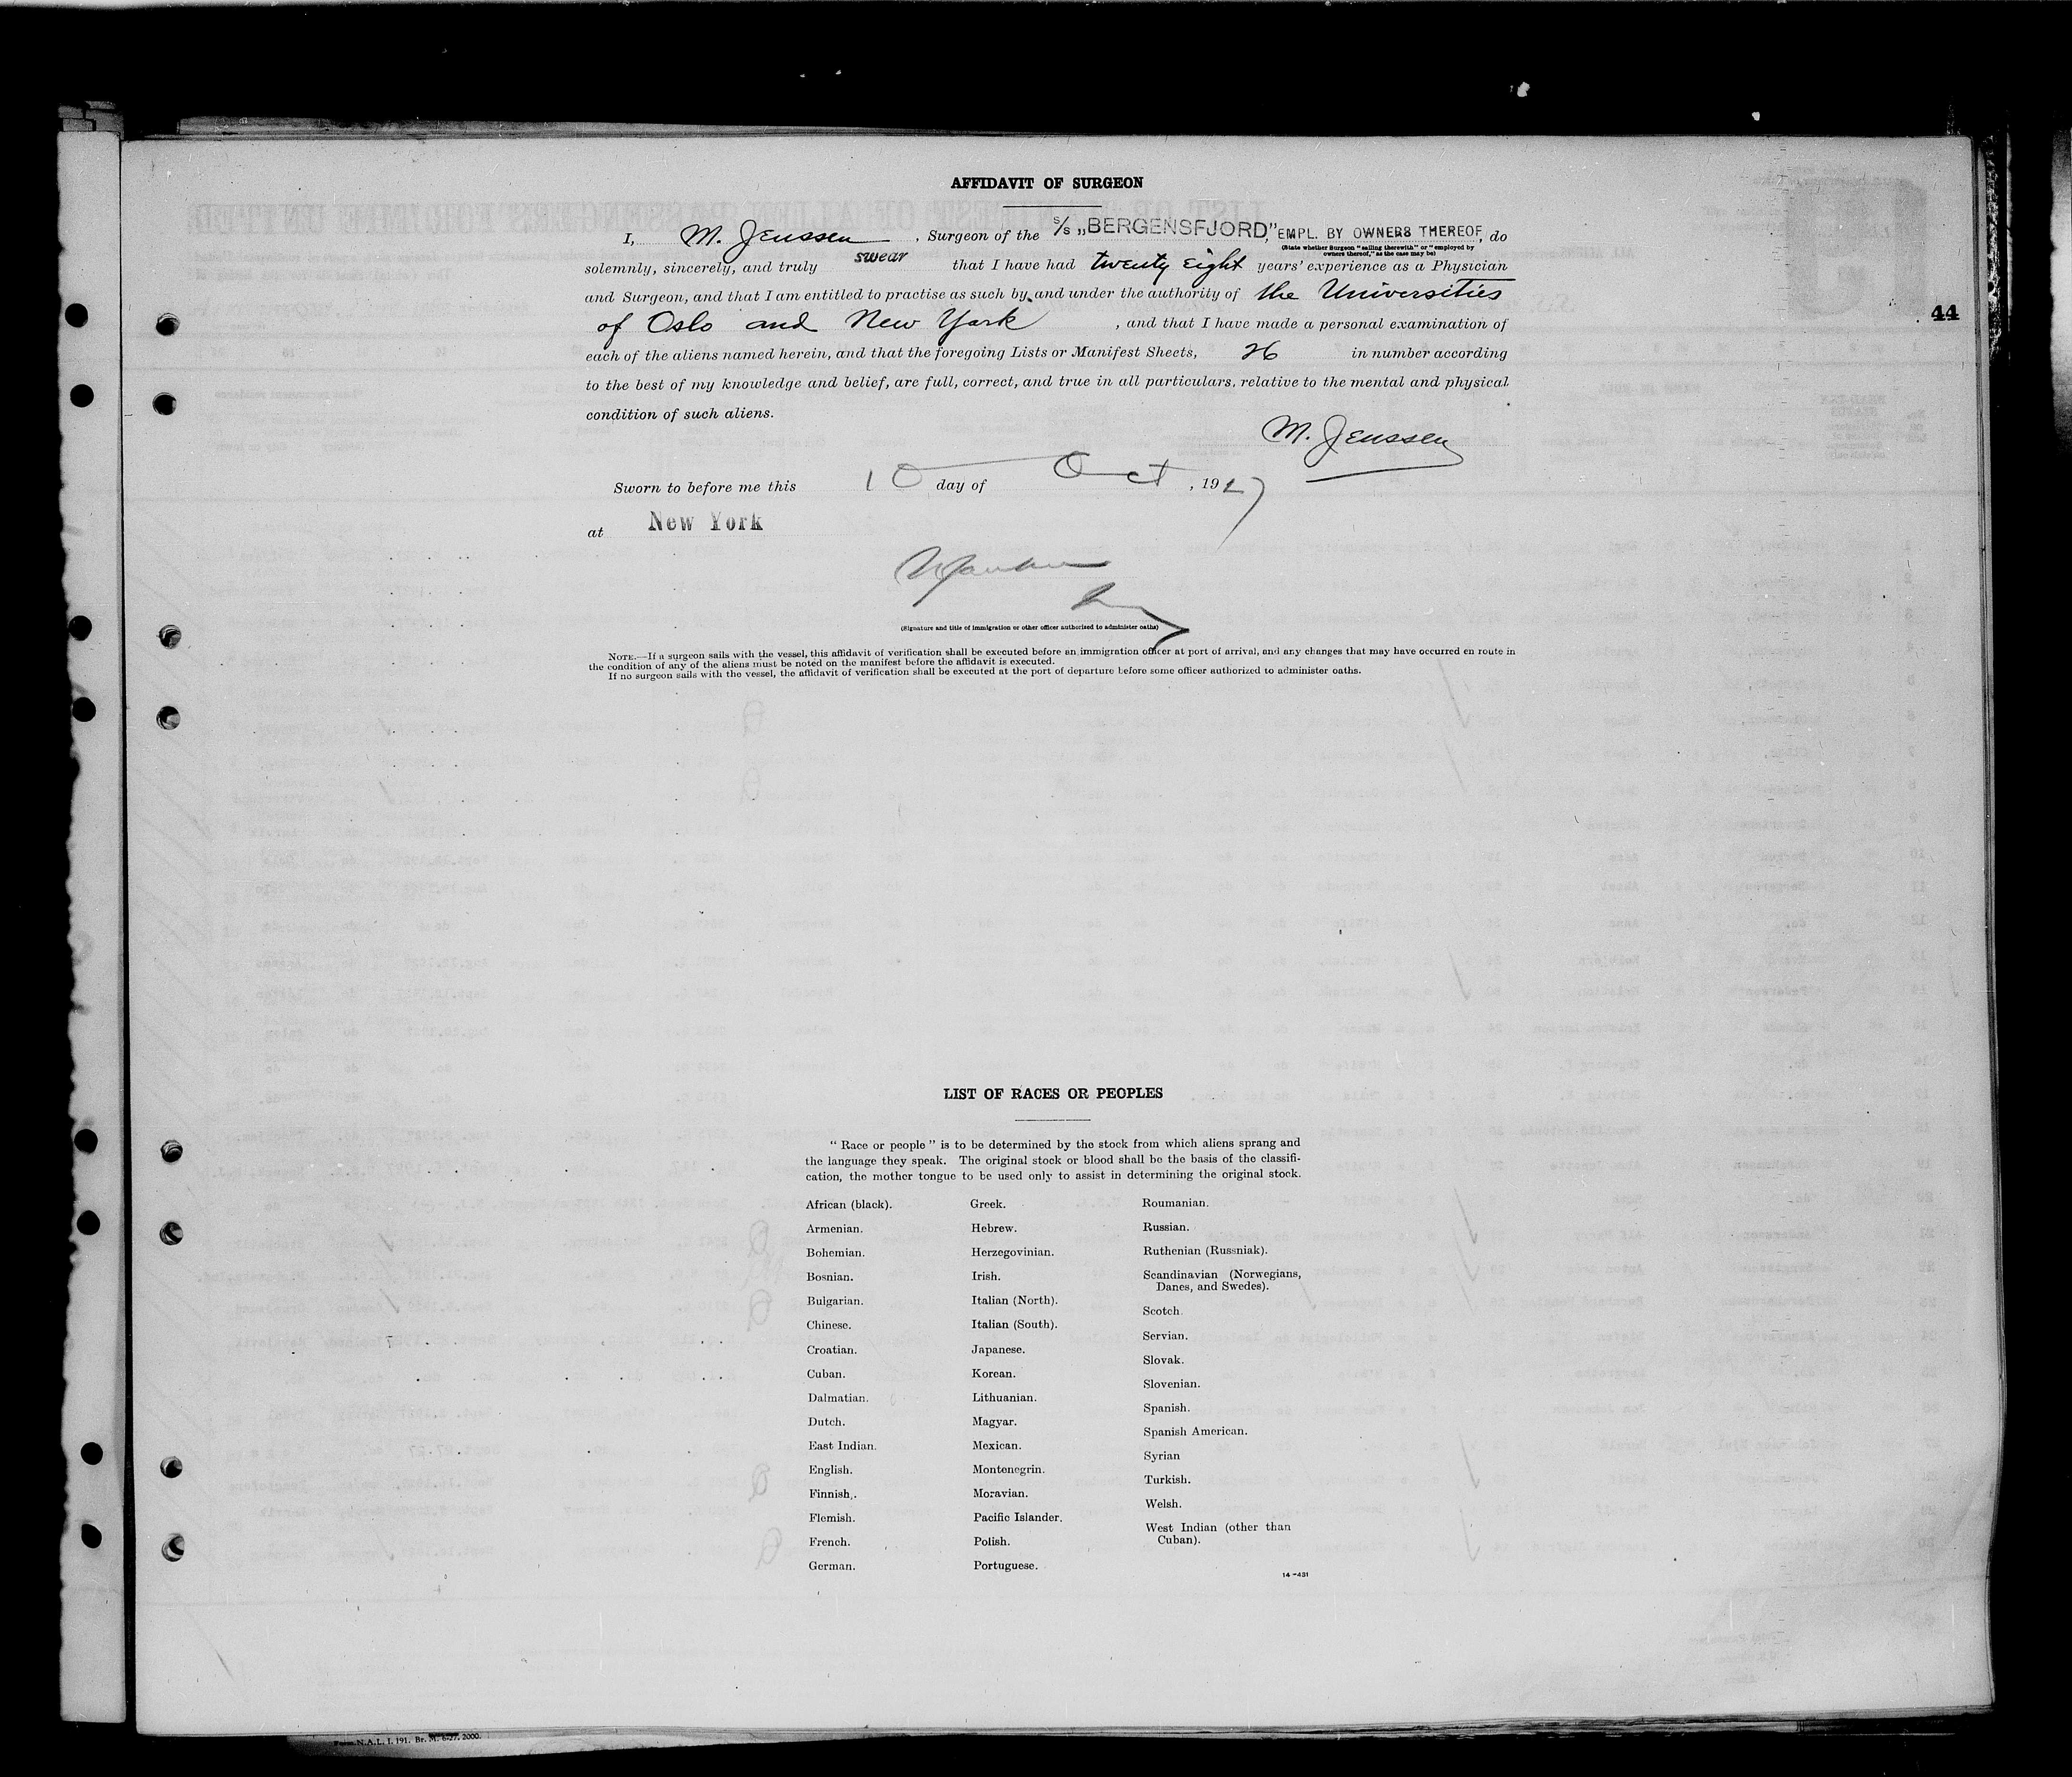 AFFIDAVIT OF SURGEON
I, M. Jenssen, Surgeon of the S/S „BERGENSFJORD,” EMPL. BY OWNERS THEREOF, do
(State whether Surgeon “sailing therewith” or “employed by
owners thereof,” as the case may be)
solemnly, sincerely, and truly swear that I have had twenty eight years’ experience as a Physician
and Surgeon, and that I am entitled to practise as such by and under the authority of the Universities
of Oslo and New York, and that I have made a personal examination of
each of the aliens named herein, and that the foregoing Lists or Manifest Sheets, 26 in number according
to the best of my knowledge and belief, are full, correct, and true in all particulars, relative to the mental and physical
condition of such aliens.
M. Jenssen
Sworn to before me this 10 day of Oct, 1927
at New York
(Signature and title of immigration or other officer authorized to administer oaths)
NOTE.—If a surgeon sails with the vessel, this affidavit of verification shall be executed before an immigration officer at port of arrival, and any changes that may have occurred en route in
the condition of any of the aliens must be noted on the manifest before the affidavit is executed.
If no surgeon sails with the vessel, the affidavit of verification shall be executed at the port of departure before some officer authorized to administer oaths.
44
LIST OF RACES OR PEOPLES
“Race or people” is to be determined by the stock from which aliens sprang and
the language they speak. The original stock or blood shall be the basis of the classifi-
cation, the mother tongue to be used only to assist in determining the original stock.
African (black).
Armenian.
Bohemian.
Bosnian.
Bulgarian.
Chinese.
Croatian.
Cuban.
Dalmatian.
Dutch.
East Indian.
English.
Finnish.
Flemish.
French.
German.
Greek.
Hebrew.
Herzegovinian.
Irish.
Italian (North).
Italian (South).
Japanese.
Korean.
Lithuanian.
Magyar.
Mexican.
Montenegrin.
Moravian.
Pacific Islander.
Polish.
Portuguese.
Roumanian.
Russian.
Ruthenian (Russniak).
Scandinavian (Norwegians,
Danes, and Swedes).
Scotch.
Servian.
Slovak.
Slovenian.
Spanish.
Spanish American.
Syrian
Turkish.
Welsh.
West Indian (other than
Cuban).
14—431
Form N.A.L. I. 191. Br. M. 6-27. 2000.